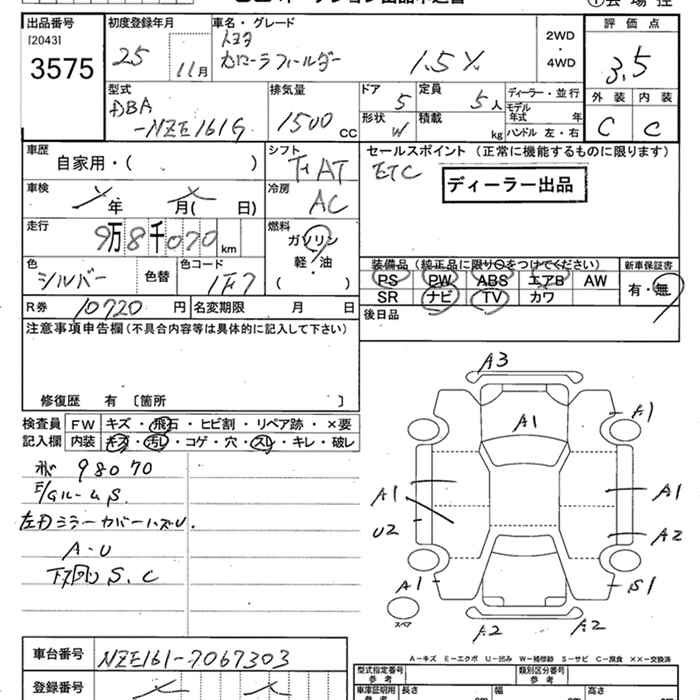 出品番号 初度登録年月 車名・グレード 2WD・4WD 評価点
[2043] 25 11月 トヨタ
3575 カローラフィールダー 1.5X 3.5
型式 排気量 ドア 定員 ディーラー・並行 外装 内装
DBA 5 5人 モデル年式 年
-NZE161G 1500cc 形状 W 積載 kg ハンドル 左・右 C C
車歴 シフト セールスポイント (正常に機能するものに限ります)
自家用・( ) AT ETC
車検 年 月( 日) 冷房 AC ディーラー出品
走行 9万8千070km 燃料
ガソリン
軽・油
( )
色 シルバー 色替 色コード 1F7
装備品 (純正品に限り○をつけてください) 新車保証書
PS PW ABS エアB AW 有・無
SR ナビ TV カワ
R券 10720円 名変期限 月 日 後日品
注意事項申告欄(不具合内容等は具体的に記入して下さい)
修復歴 有 〔箇所 〕
検査員 FW キズ・飛石・ヒビ割・リペア跡・×要
記入欄 内装 キズ・汚レ・コゲ・穴・スレ・キレ・破レ
98070
E/Gルーム S.
左右ミラーカバーハズU.
A-U
下廻り S.C
A3
A1
A1
A1
A1
U2
A2
A1
S1
スペア
A2
A2
車台番号 NZE161-7067303
A-キズ E-エクボ U-凹み W-補修跡 S-サビ C-腐食 ××-交換済
登録番号
型式指定番号 参考 類別区分番号 参考
車庫証明用 参考 長さ 幅 高さ